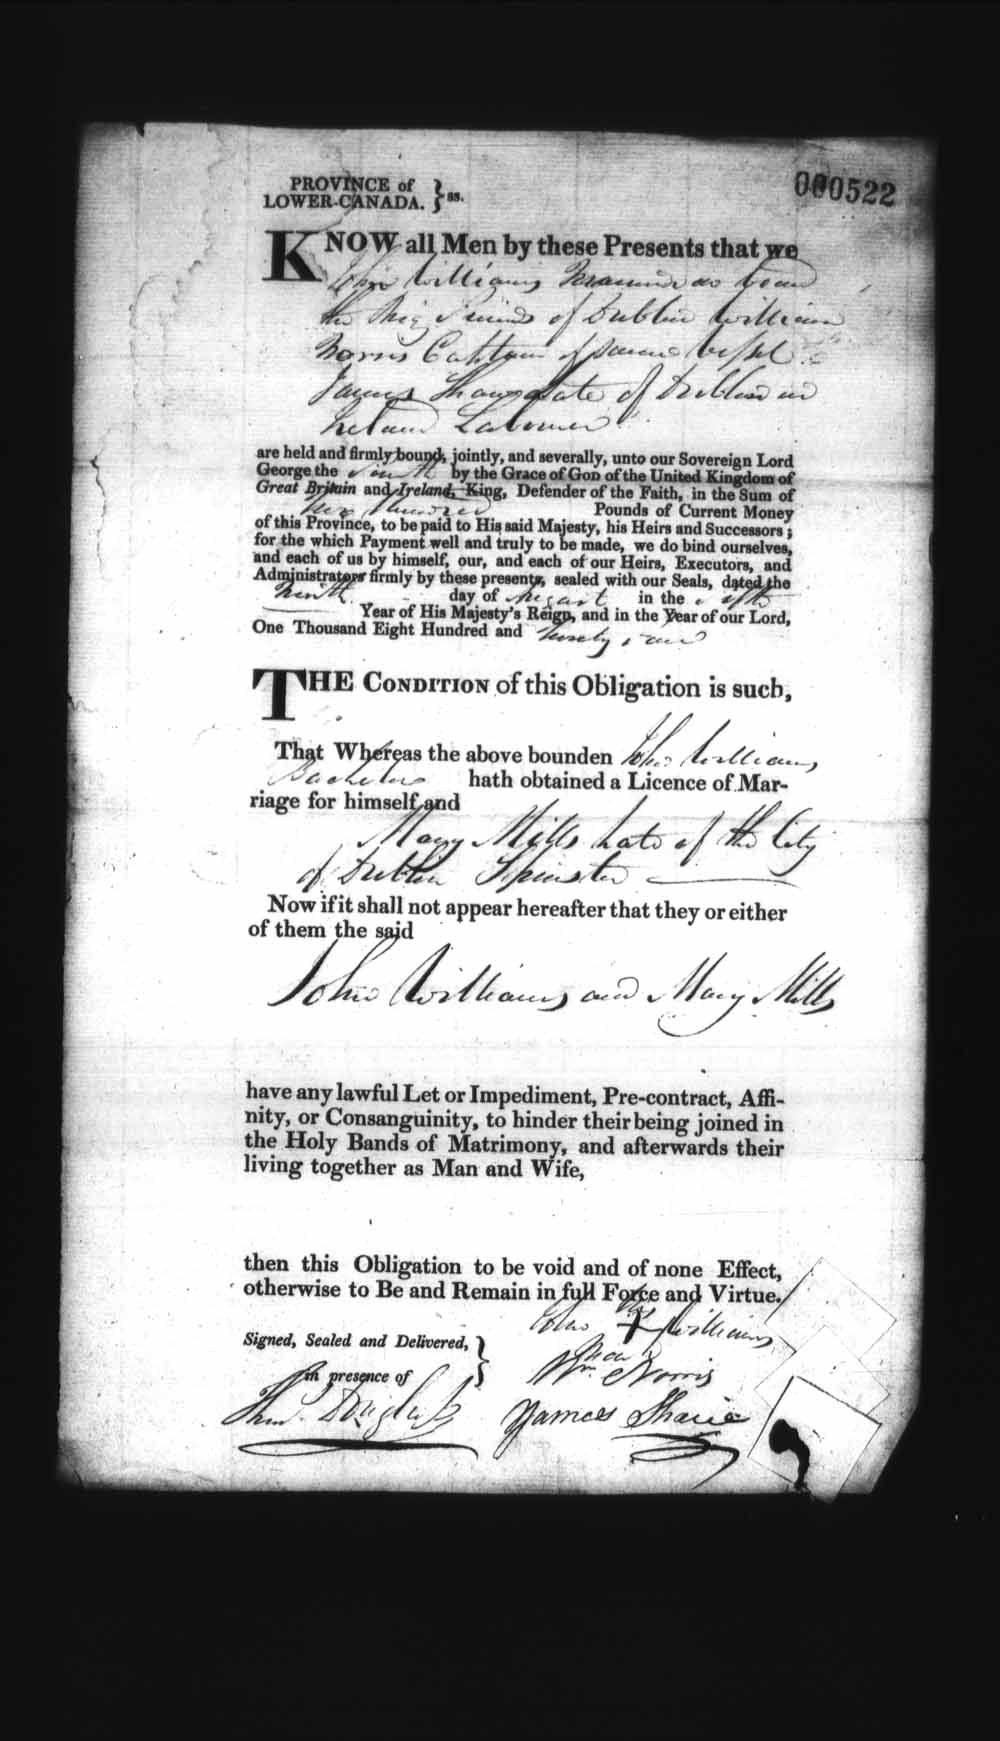 000522
PROVINCE of
LOWER-CANADA. } ss.
KNOW all Men by these Presents that we
John Williams on board
the Brig Friends of Dublin William
Norris Captain of same vessel &
James Late of Dublin in
Ireland Labourer
are held and firmly bound, jointly, and severally, unto our Sovereign Lord
George the Fourth by the Grace of God of the United Kingdom of
Great Britain and Ireland, King, Defender of the Faith, in the Sum of
Hundred Pounds of Current Money
of this Province, to be paid to His said Majesty, his Heirs and Successors;
for the which Payment well and truly to be made, we do bind ourselves,
and each of us by himself, our, and each of our Heirs, Executors, and
Administrators firmly by these presents, sealed with our Seals, dated the
Ninth day of August in the fifth
Year of His Majesty's Reign, and in the Year of our Lord,
One Thousand Eight Hundred and twenty four
THE CONDITION of this Obligation is such,
That Whereas the above bounden John Williams
Bachelor hath obtained a Licence of Mar-
riage for himself and
Mary Mills Late of the City
of Dublin Spinster
Now if it shall not appear hereafter that they or either
of them the said
John Williams and Mary Mills
have any lawful Let or Impediment, Pre-contract, Affi-
nity, or Consanguinity, to hinder their being joined in
the Holy Bands of Matrimony, and afterwards their
living together as Man and Wife,
then this Obligation to be void and of none Effect,
otherwise to Be and Remain in full Force and Virtue.
his
John + Williams
mark
Signed, Sealed and Delivered, }
in presence of
Wm. Norris
Thos. Douglass James